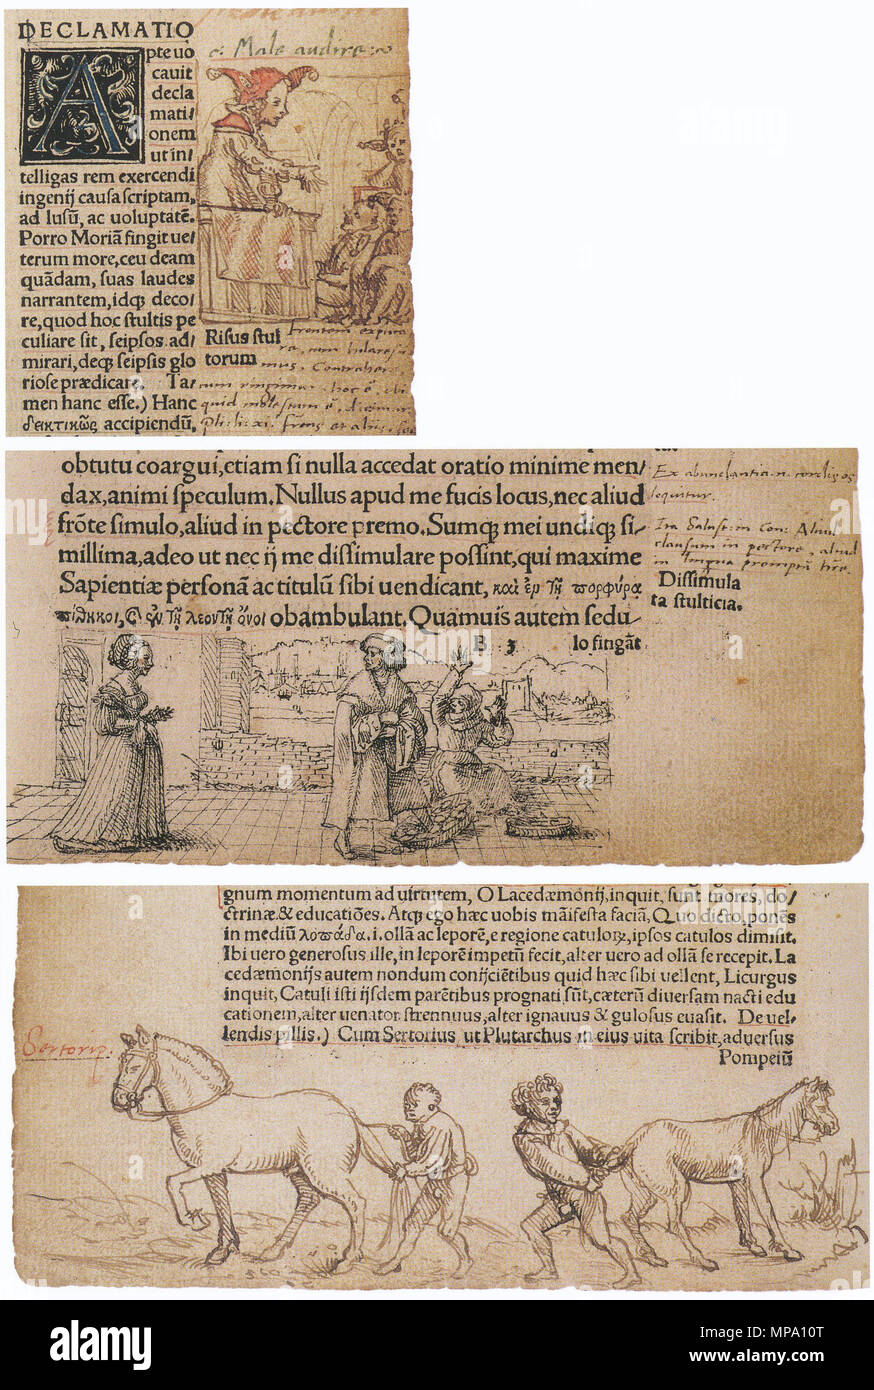 DECLAMATIO
APte uo
cauit
decla
mati/
onem
ut in/
telligas rem exercendi
ingenij causa scriptam,
ad lusū, ac uoluptatē.
Porro Moriā fingit ue/
terum more, ceu deam
quādam, suas laudes
narrantem, idq; deco/
re, quod hoc stultis pe
culiare sit, seipsos ad/
mirari, deq; seipsis glo
riose prædicare. Ta/
men hanc esse.) Hanc
δεικτικῶς accipiendū,
c: Male audire
Risus stul
torum
obtutu coargui, etiam si nulla accedat oratio minime men/
dax, animi speculum. Nullus apud me fucis locus, nec aliud
frōte simulo, aliud in pectore premo. Sumq; mei undiq; si/
millima, adeo ut nec ij me dissimulare possint, qui maxime
Sapientiæ personā ac titulū sibi uendicant, καὶ ἐν τῇ πορφύρᾳ
πίθηκοι, & ἐν τῇ λεοντῇ ὄνοι obambulant. Quamuis autem sedu
B 3 lo fingāt
Ex abundantia n. cordis os
loquitur.
Ita Salust: in Con: Aliud
clausum in pectore, aliud
in lingua promptū hr̄e.
Dissimula
ta stulticia.
gnum momentum ad uirtutem, O Lacedæmonij, inquit, sunt mores, do/
ctrinæ & educatiōes. Atq; ego hæc uobis māifesta faciā, Quo dicto, ponēs
in mediū λοπάδα .i. ollā ac leporē, e regione catuloꝝ, ipsos catulos dimisit.
Ibi uero generosus ille, in leporē impetū fecit, alter uero ad ollā se recepit. La
cedæmonijs autem nondum conijciētibus quid hæc sibi uellent, Licurgus
inquit, Catuli isti ijsdem parētibus prognati sūt, cæterū diuersam nacti edu
cationem, alter uenator strennuus, alter ignauus & gulosus euasit. De uel/
lendis pillis.) Cum Sertorius, ut Plutarchus in eius uita scribit, aduersus
Pompeiū
Sertoriꝰ.
alamy
a
alamy
Image ID: MPA10T
www.alamy.com